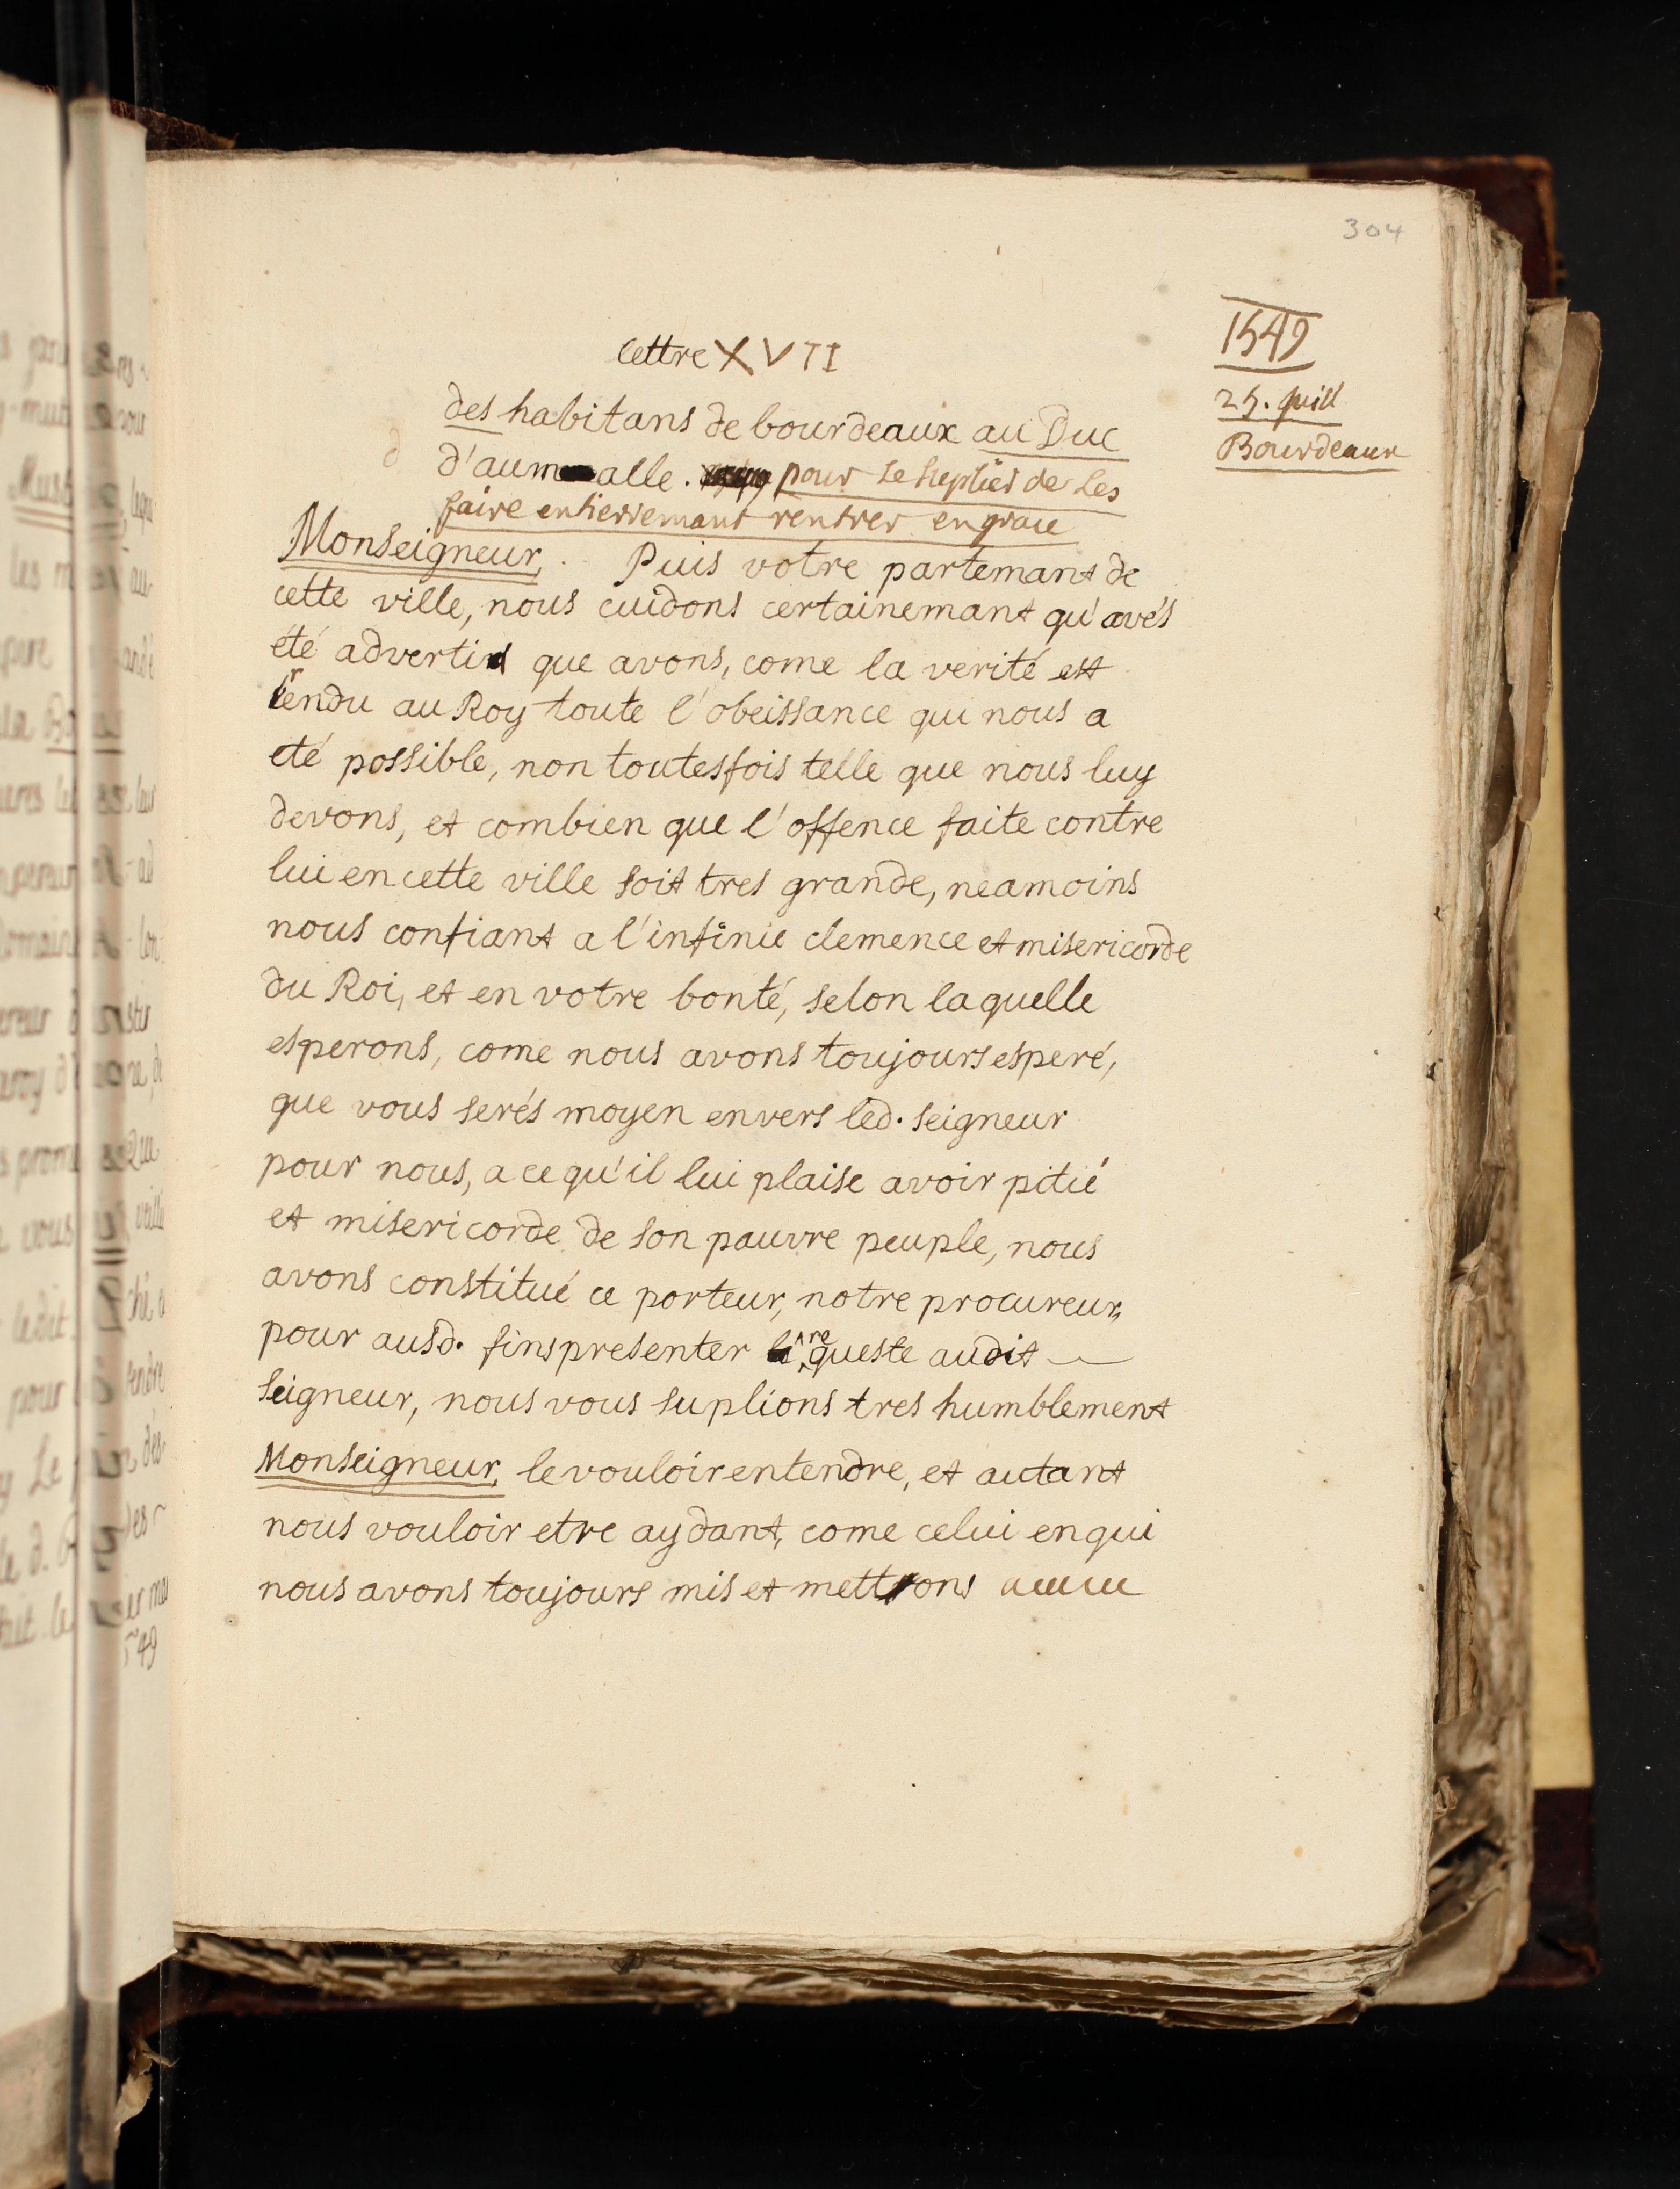 304
1549
25. Juill
Bourdeaux
Lettre XVII
des habitans de bourdeaux au Duc
d'aumalle. pour Le suplier de Les
faire entierremant rentrer en grace
Monseigneur, Puis votre partemant de
cette ville, nous cuidons certainemant qu'avés
été adverti que avons, come la verité est
rendu au Roy toute l'obeissance qui nous a
eté possible, non toutesfois telle que nous luy
devons, et combien que l'offence faite contre
lui en cette ville soit tres grande, neamoins
nous confiant a l'infinie clemence et misericorde
du Roi, et en votre bonté, selon laquelle
esperons, come nous avons toujours esperé,
que vous serés moyen envers led. seigneur
pour nous, a ce qu'il lui plaise avoir pitié
et misericorde de son pauvre peuple, nous
avons constitué ce porteur, notre procureur,
pour ausd. fins presenter requeste audit
seigneur, nous vous suplions tres humblement
Monseigneur, le vouloir entendre, et autant
nous vouloir etre aydant, come celui en qui
nous avons toujours mis et mettrons